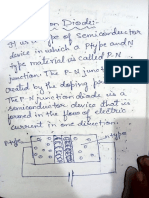 ion Diode:-
It is a type of semiconductor
device in which a P type and N
type material is called P.N
junction. The P-N junction
created by the doping pro
The P-N junction diode is a
semiconductor device that is
formed in the flow of electric
current in one direction.
P-type
n-type